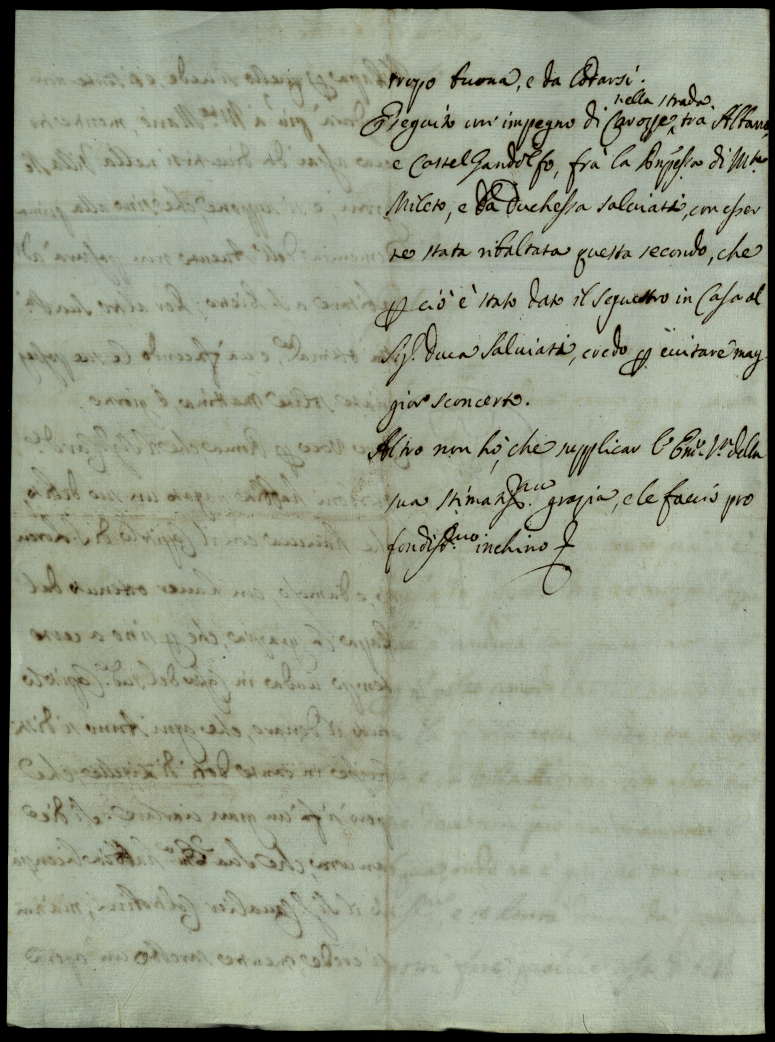 troppo buona, e da lodarsi.
Seguito un' impegno di Carozze nella strada trà Albano,
e Castel Gandolfo, frà la Pnpessa di Mte
Mileto, e la Duchessa Salviati, con esser
ne stata ribaltata questa seconda, che
p ciò è stato dato il sequestro in Casa al
Sigr. Duca Salviati, credo p evitare mag-
gior sconcerto.
Altro non hò, che supplicar l'Emza Vra della
sua stimatissma grazia, e le faccio pro
fondissmo inchino